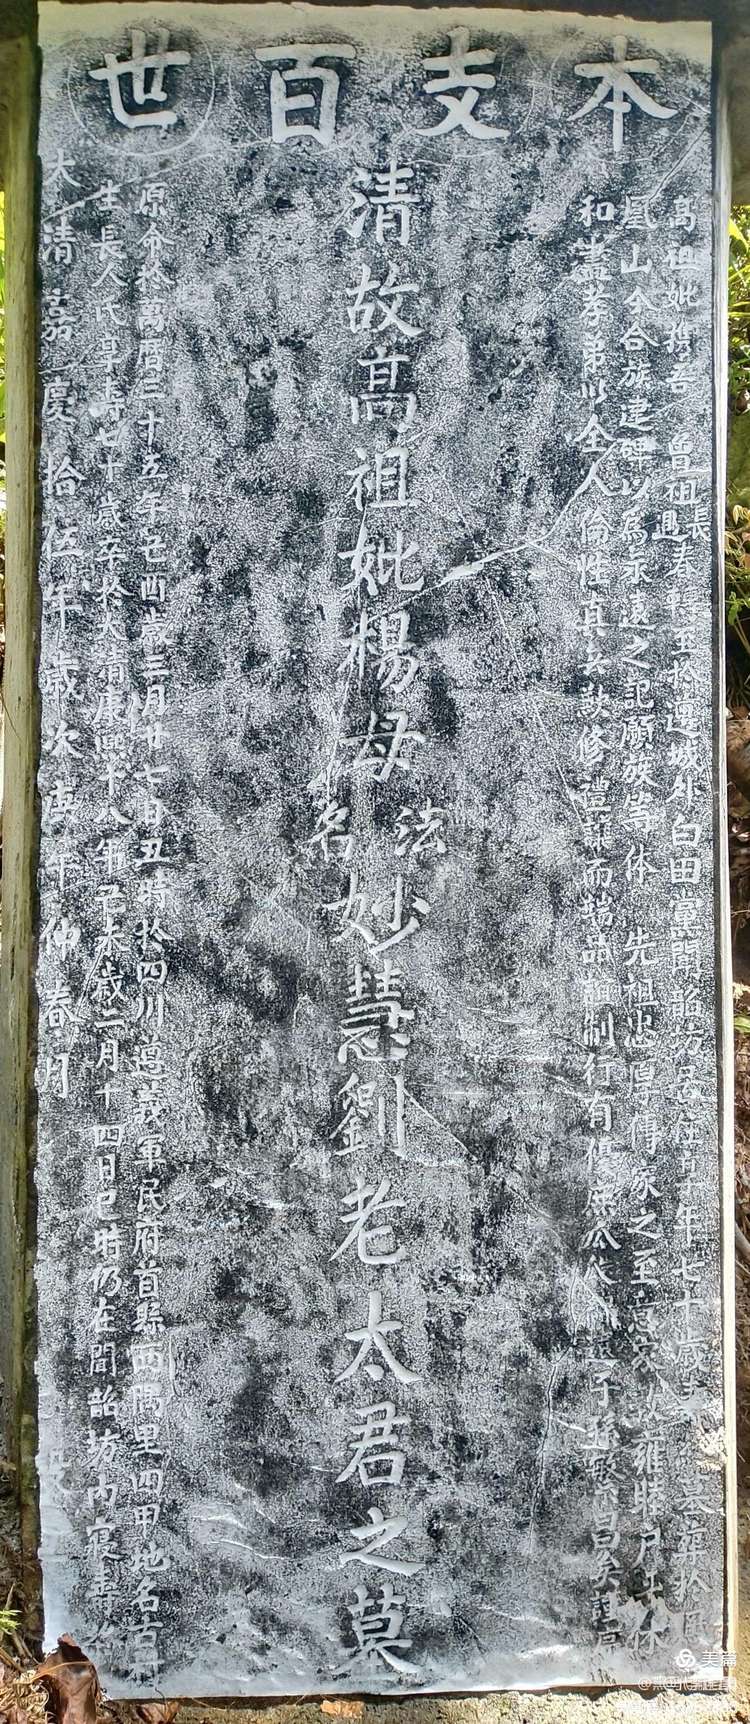 本支百世
高祖妣携吾 曾祖長過春轉至於邊城外白田黨聞韶坊居住五十年七十歲 墓葬於鳳
凰山今合族建碑以爲永遠之記願族等体 先祖忠厚傳家之至意家 雍睦
和盡孝弟以全人倫性真 修禮讓而端品 制行有 瓜 子孫繁昌矣謹
清故高祖妣楊母法名妙慧劉老太君之墓
原命於萬曆三十五年 酉歲三月廿七日丑時於四川遵義軍民府首縣西隅里四甲地名古村
生長人氏享壽七十歲卒於大清康熙十八年己未歲二月十四日巳時仍在聞韶坊内寢壽終
大清嘉慶拾伍年歲次庚午仲春月
美篇